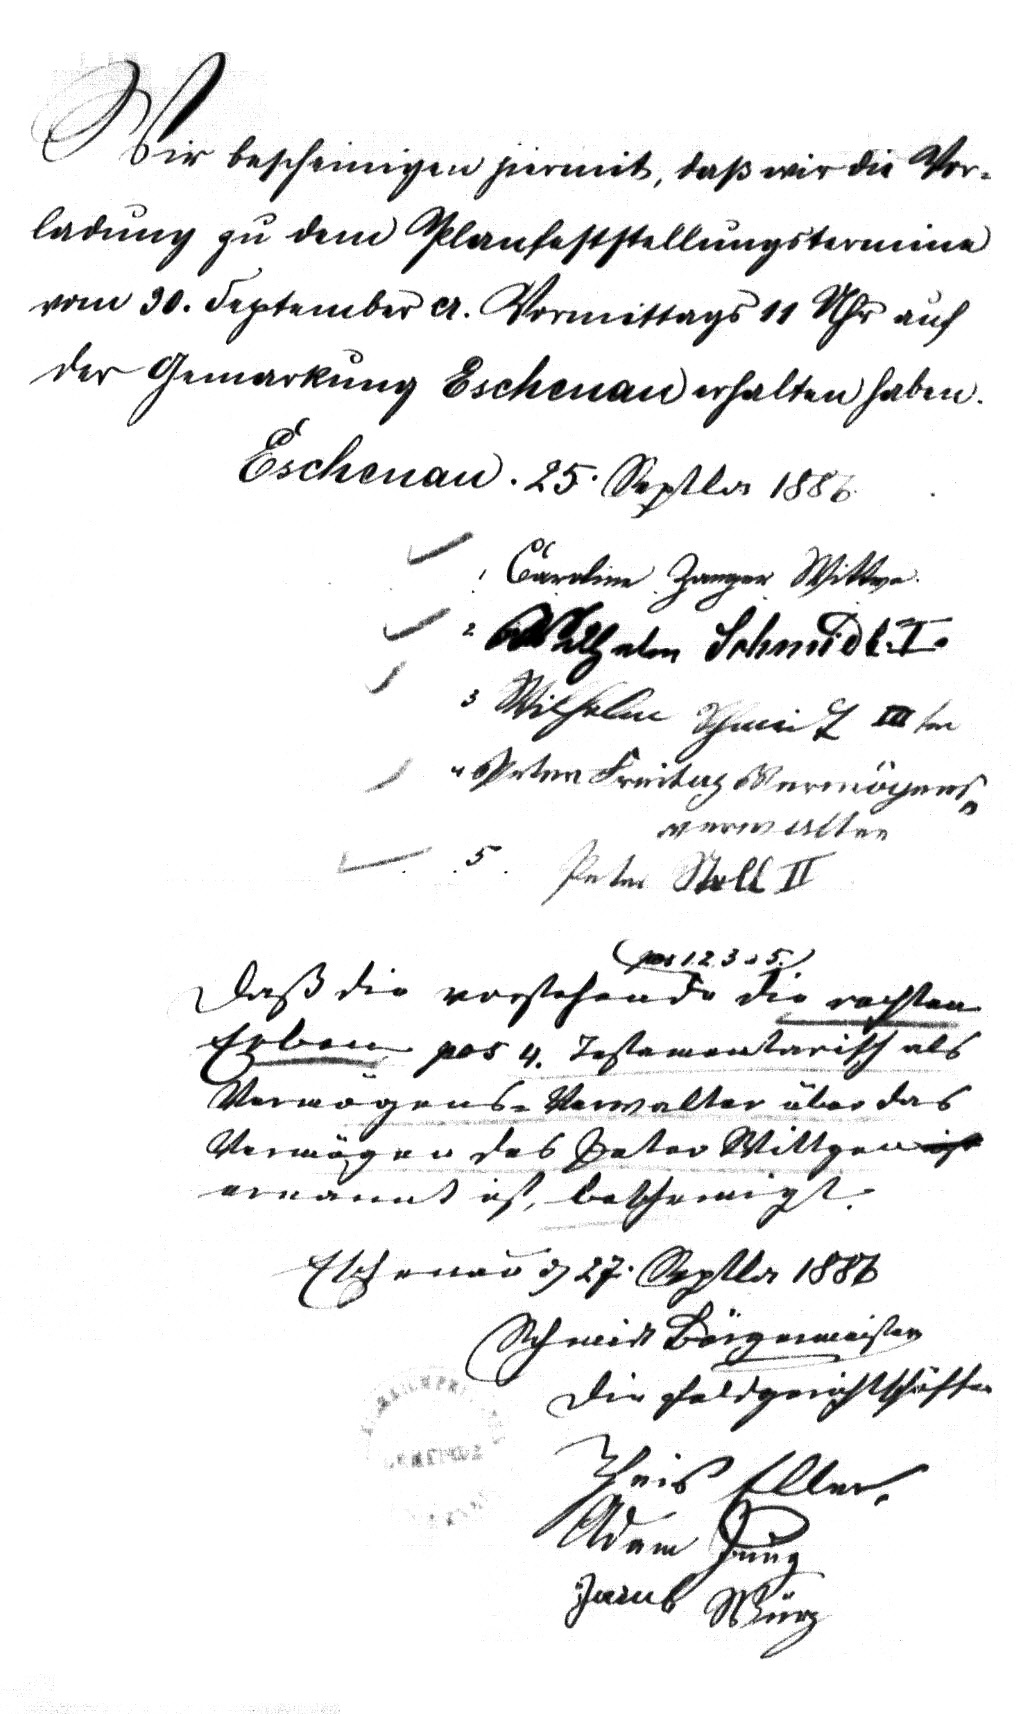 Wir bescheinigen hiermit, daß wir die Vor-
ladung zu dem Planfeststellungstermine
vom 30. September cr. Vormittags 11 Uhr auf
der Gemarkung Eschenau erhalten haben.
Eschenau. 25. Septbr 1886.
1 Caroline Zanger Wittwe.
2 Wilhelm Schmidt. I.
3 Wilhelm Schmidt III ter
4 Peter Freitag Vermögens-
verwalter
5. Peter Stoll II
(pos 1. 2. 3 u 5.)
Daß die vorstehende die rechten
Erben pos 4. Testamentarisch als
Vermögens-Verwalter über das
Vermögen des Peter Wittgen ist
ernannt ist, bescheinigt.
Eschenau d 27. Septbr 1886
Schmidt Bürgermeister
Die Feldgerichtschöffen
Theis Eller.
Adam Jung
Jacob Würz